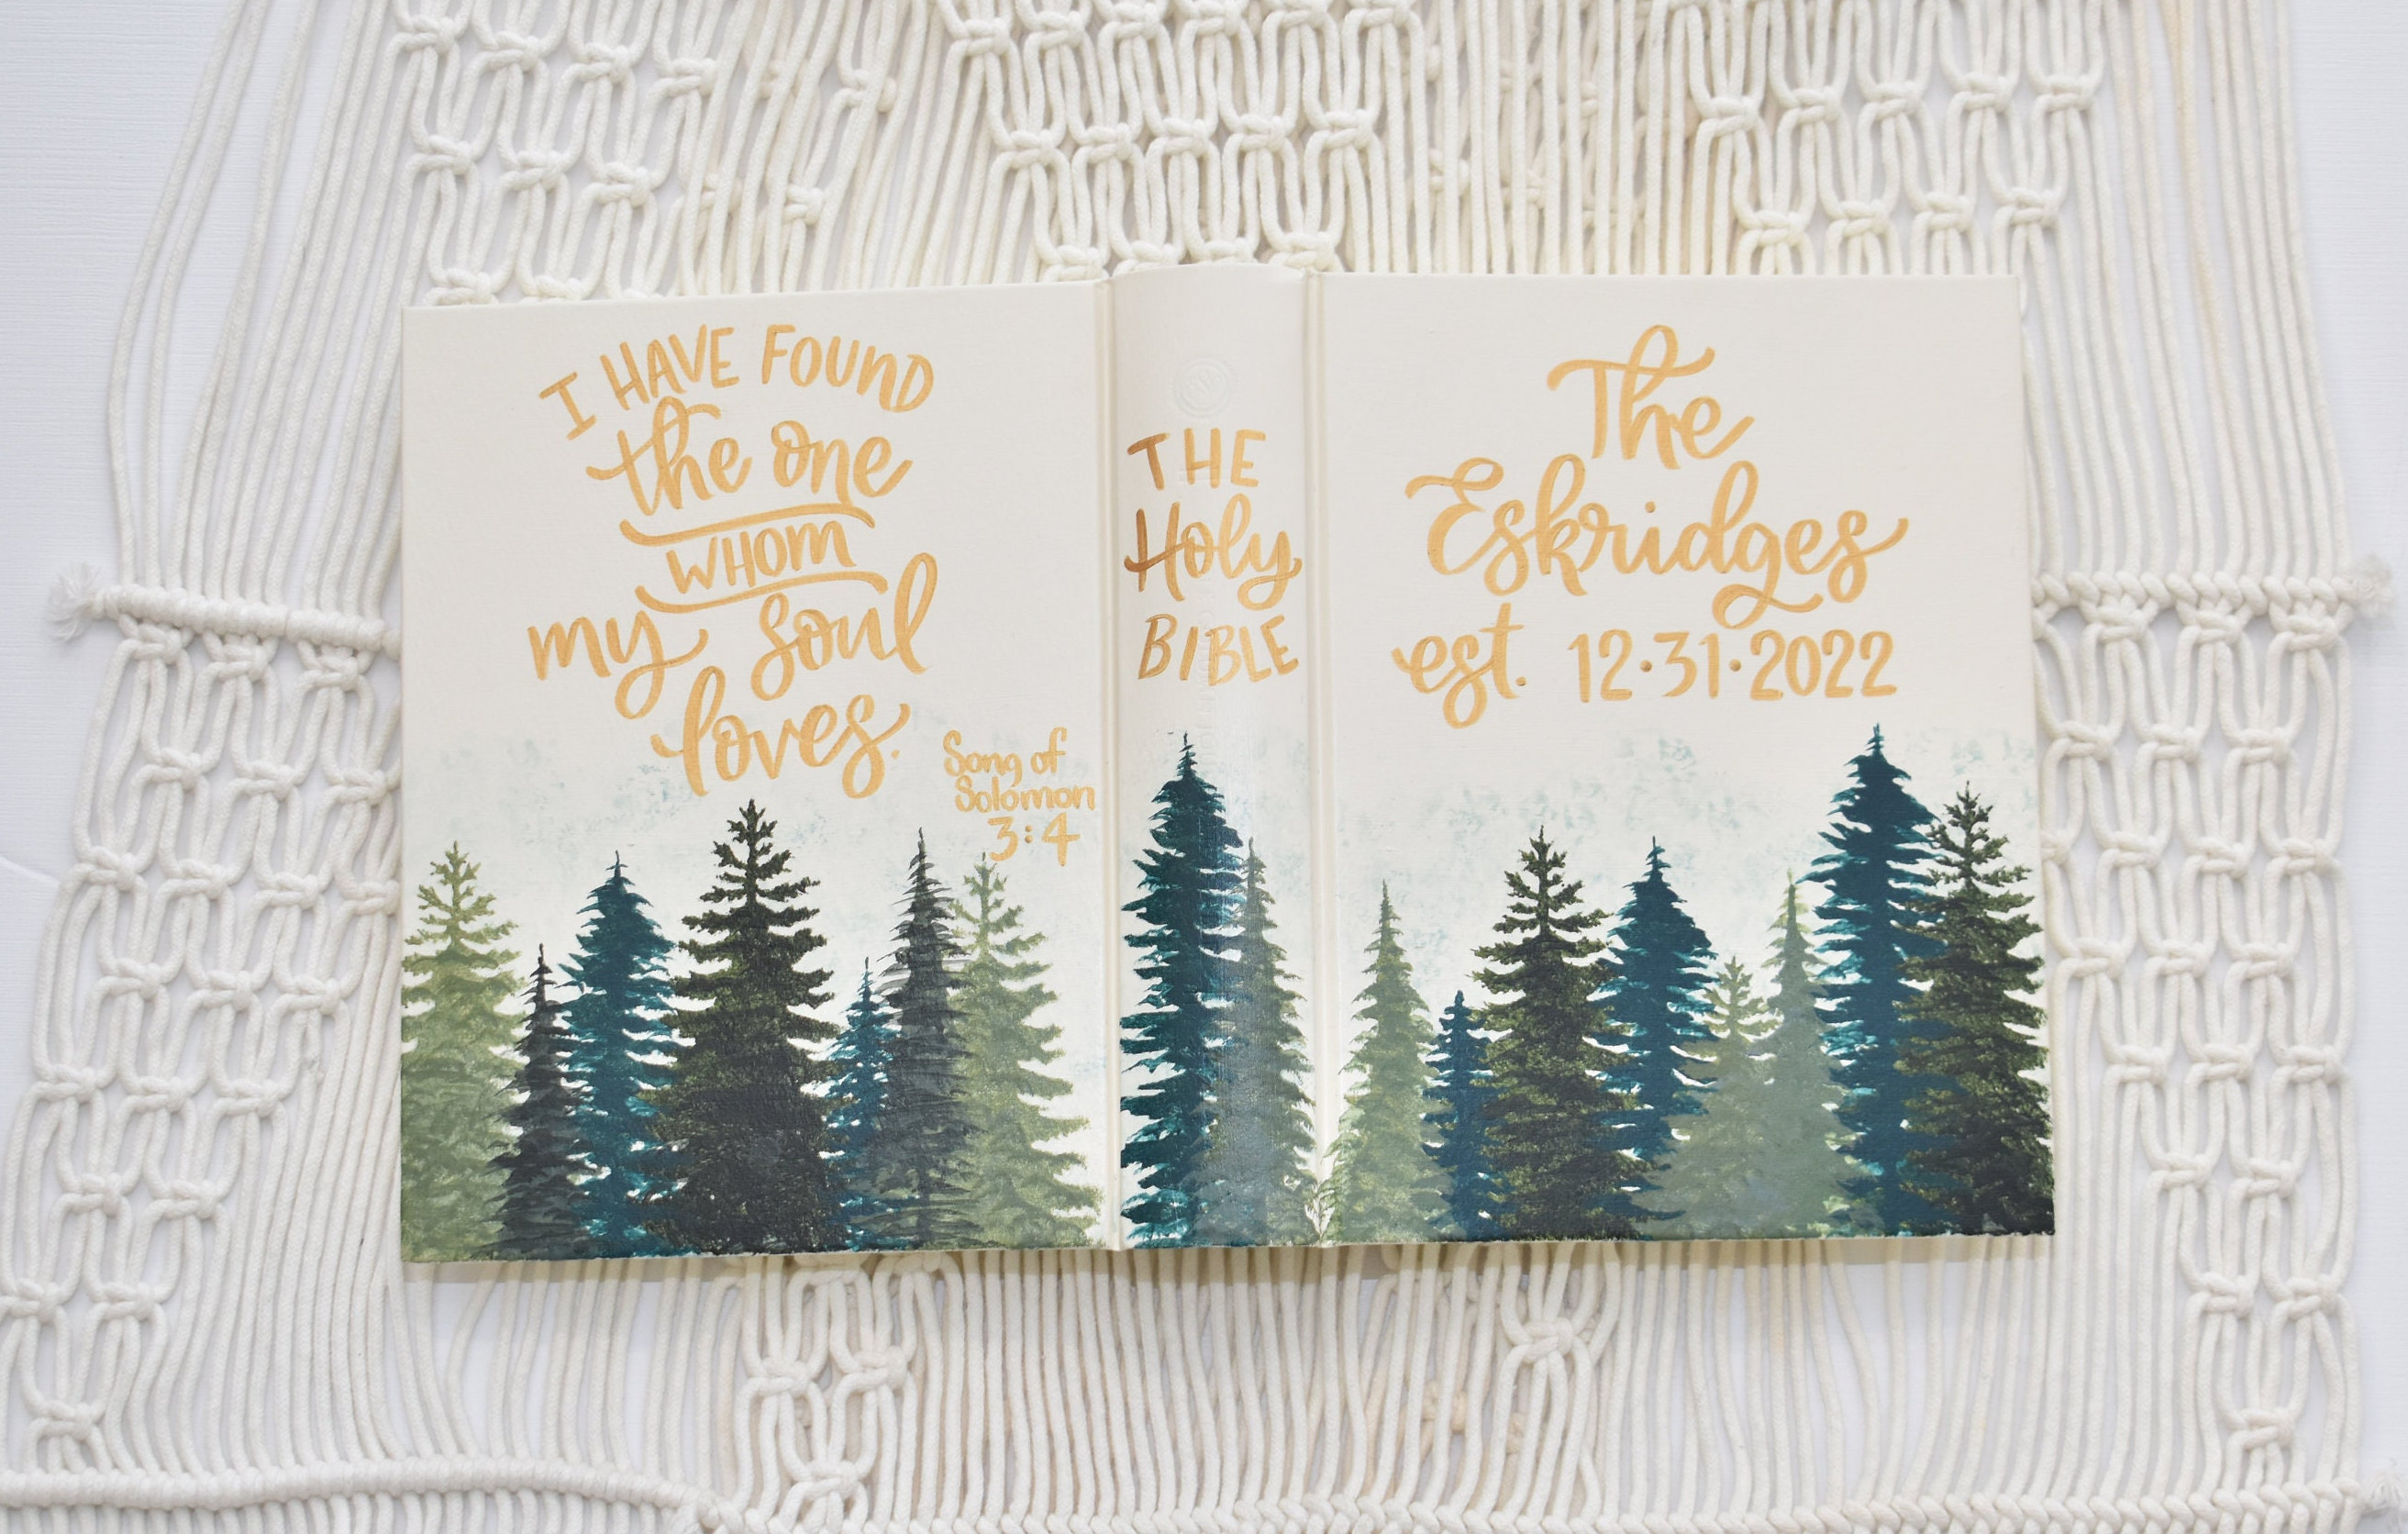 I HAVE FOUND
the one
WHOM
my soul
loves.
Song of
Solomon
3:4
THE
Holy
BIBLE
The
Eskridges
est. 12·31·2022